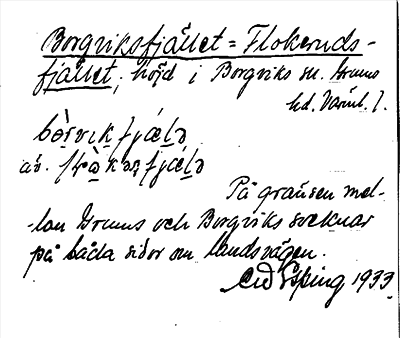 Borgviksfjället = Flokeruds-
fjället, höjd i Borgviks sn. Grums
hd. Värml. l.
bòrvikfjælə
äv.
På gränsen mel-
-lan Grums och Borgviks socknar
på båda sidor om landsvägen.
Esping 1933